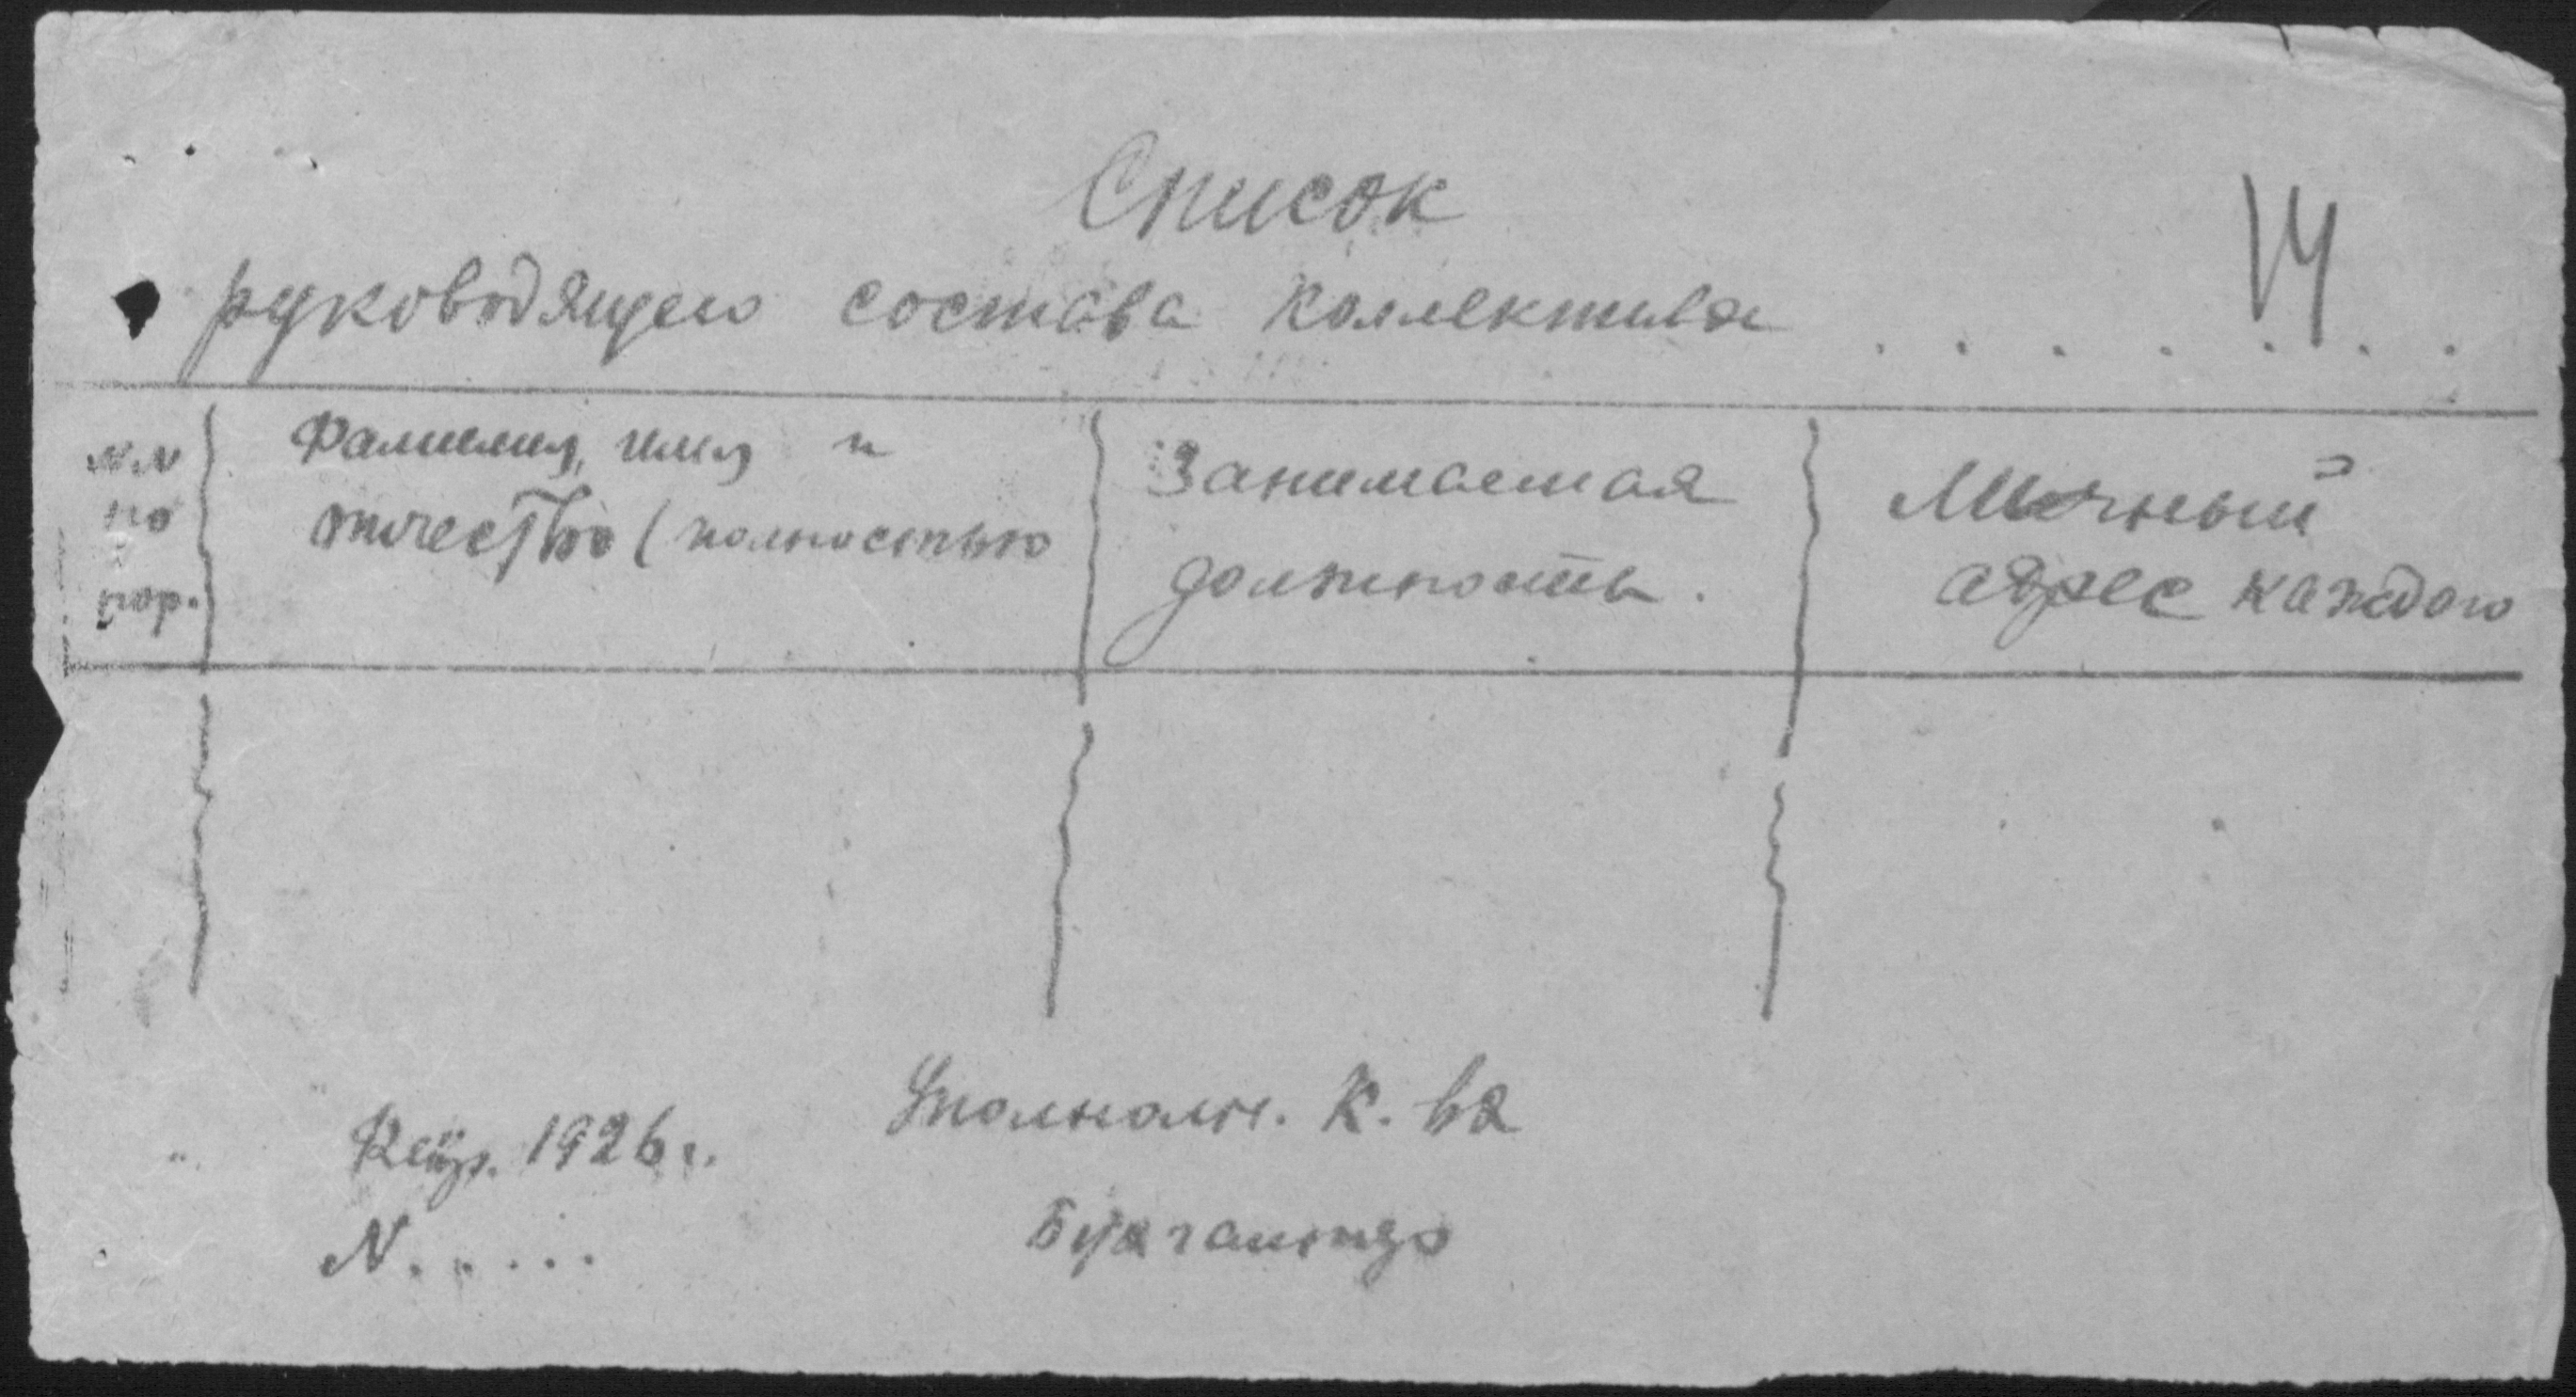 Список
14
руководящего состава коллектива . . . . . . .
NN
по
пор.
Фамилия, имя и
отчество (полностью
Занимаемая
должность.
Личный
адрес каждого
1926 г.
N. . . . .
Уполномч. К. ва
Бухгалтер